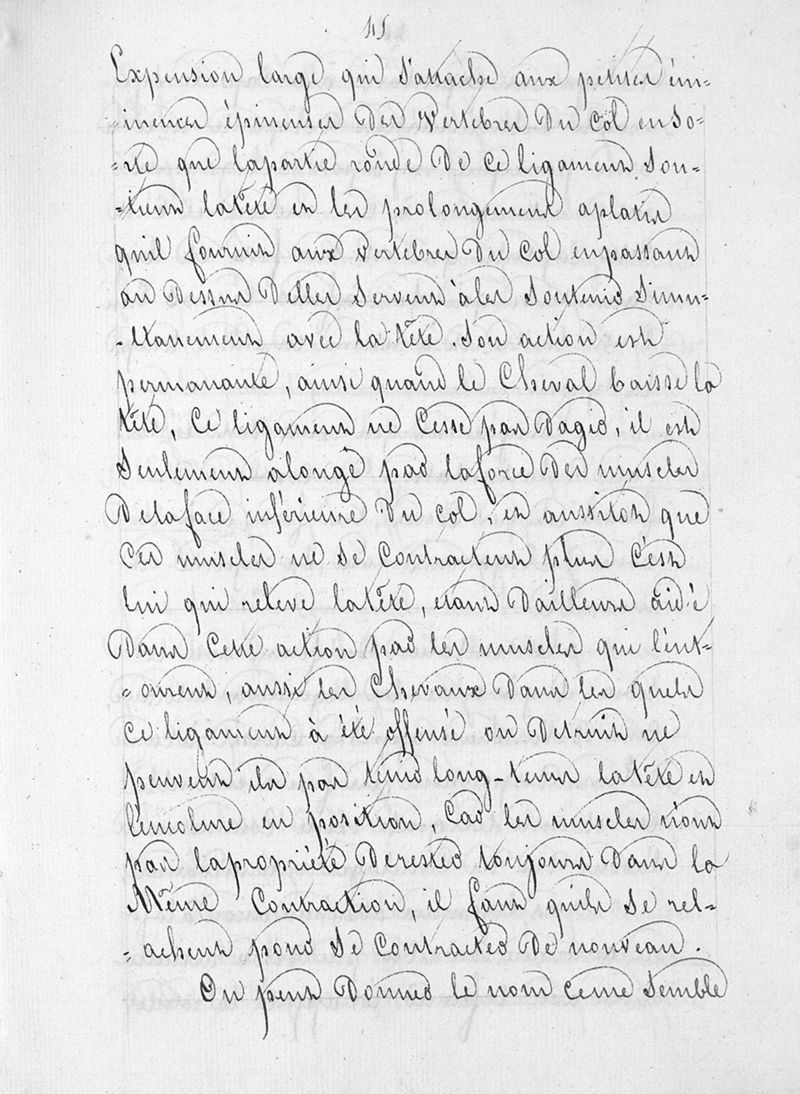 45
Expension large qui s'attache aux petites ém-
-inences épineuses des vertebres du col en so-
-rte que la partie ronde de ce ligament, sou-
-tient la tête et les prolongements aplatis
qu'il fournit aux vertebres du col en passant
au dessus delles servent à les soutenir simu-
-ltanement avec la tête. Son action est
permanante, ainsi quand le Cheval baisse la
tête, ce ligament ne cesse pas dagir, il est
seulement alongé par la force des muscles
de la face inférieure du col, et aussitot que
ces muscles ne se contractent plus c'est
lui qui releve la tête, etant dailleurs aidé
dans cette action par les muscles qui l'ent-
-ourent, aussi les Chevaux dans les quels
ce ligament à été offensé ou detruit ne
peuvent ils pas tenir long-tems la tête et
lencolure en position, car les muscles n'ont
pas la propriété de rester toujours dans la
Même Contraction, il faut qu'ils se rel-
-achent pour se contracter de nouveau.
On peut donner le nom ceme semble